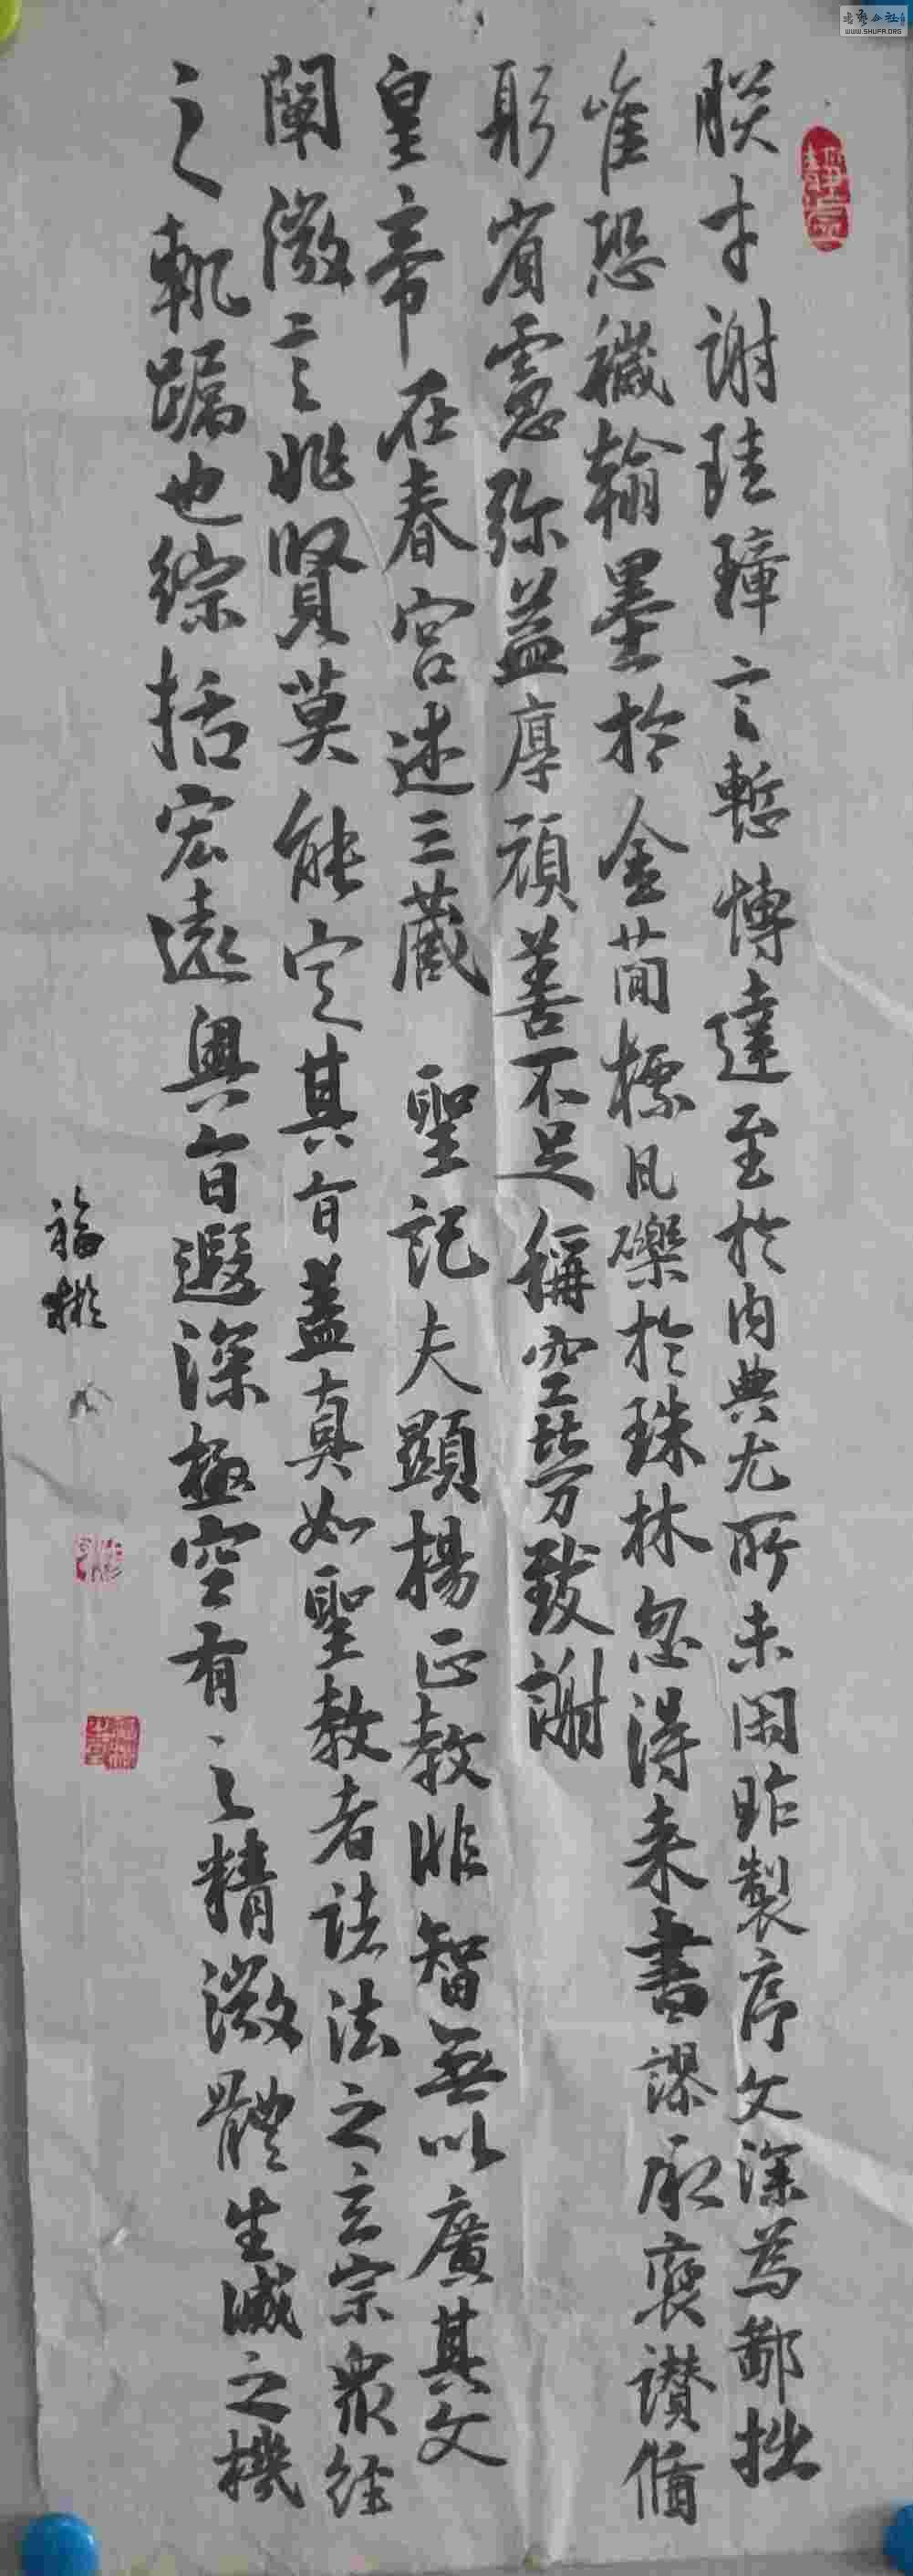 朕才謝珪璋言慙博達至於內典尤所未閑昨製序文深為鄙拙
唯恐穢翰墨於金簡標瓦礫於珠林忽得来書謬承褒讚循
躬省慮弥益厚顏善不足稱空勞致謝
皇帝在春宮述三藏 聖記夫顯揚正教非智無以廣其文
闡微言非賢莫能定其旨蓋真如聖教者諸法之玄宗眾经
之軌躅也綜括宏遠奧旨遐深極空有之精微體生滅之機
福彬
WWW.SHUFA.ORG